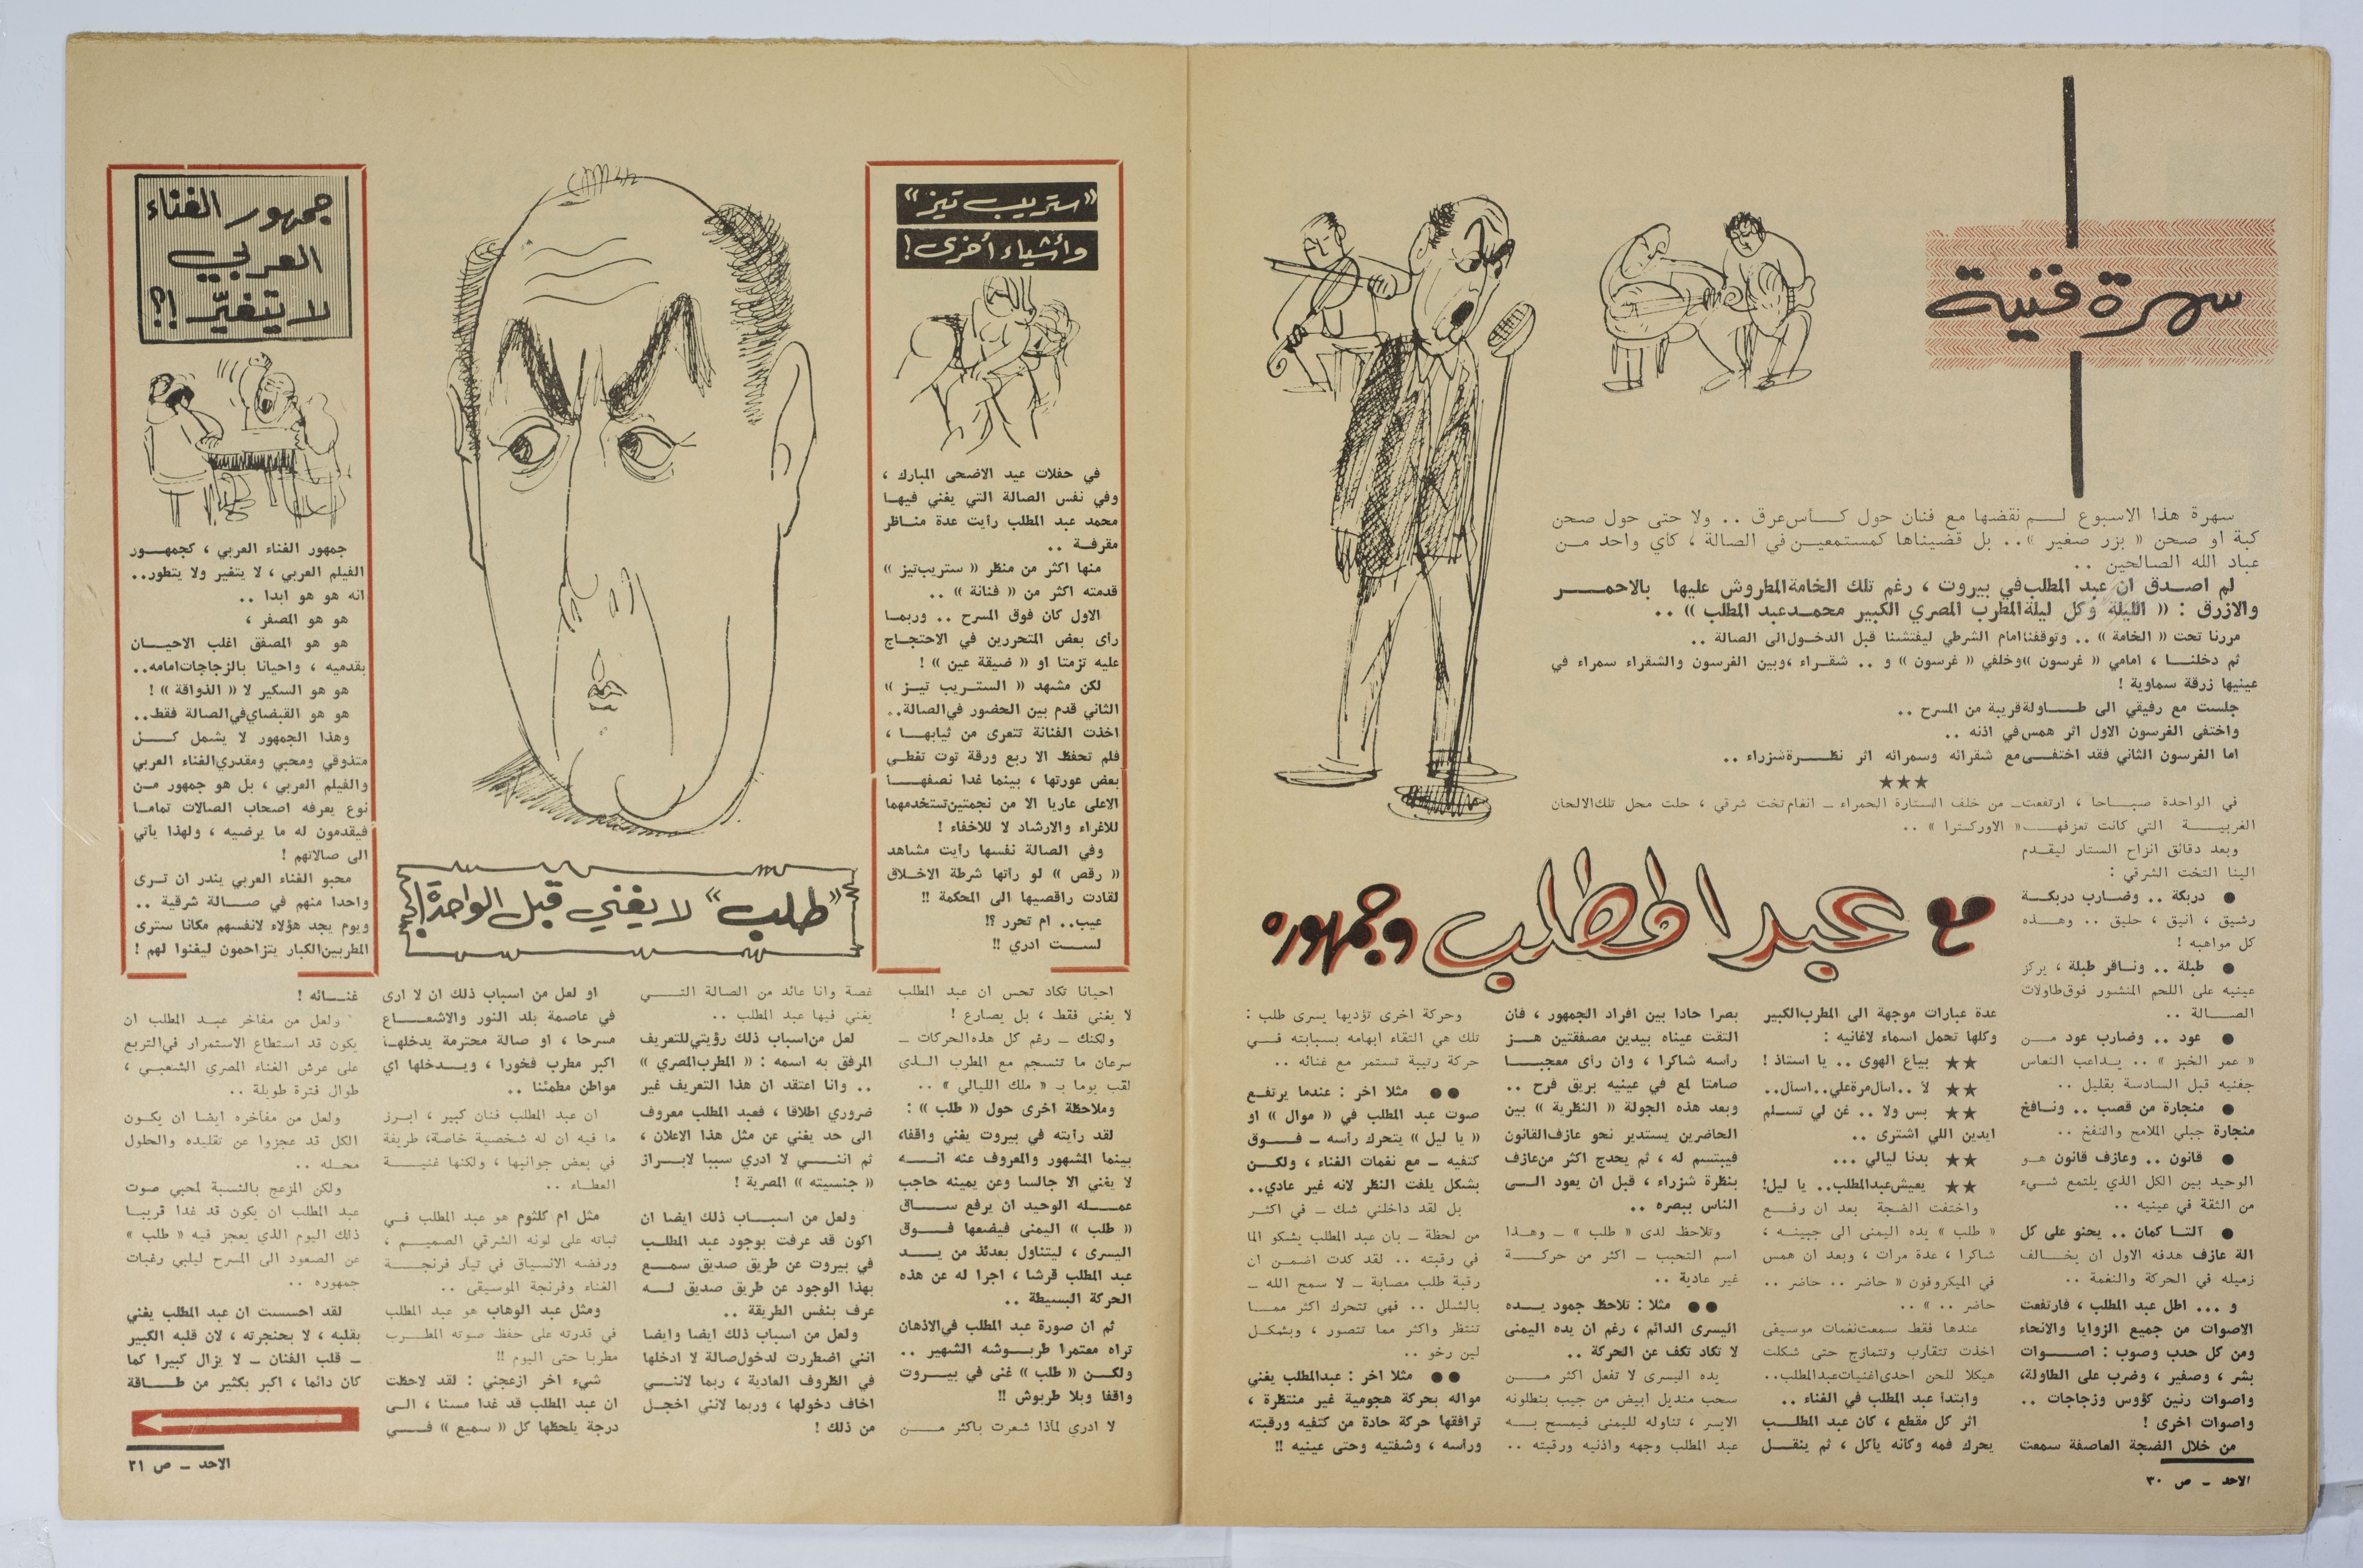 سهرة فنية
سهرة هذا الاسبوع لم نقضها مع فنان حول كأس عرق .. ولا حتى حول صحن
كبة او صحن « بزر صغير » .. بل قضيناها كمستمعين في الصالة ، كاي واحد من
عباد الله الصالحين ..
لم اصدق ان عبد المطلب في بيروت ، رغم تلك الخامة المطروش عليها بالاحمر
والازرق : « الليلة وكل ليلة المطرب المصري الكبير محمد عبد المطلب » ..
مررنا تحت « الخامة » .. وتوقفنا امام الشرطي ليفتشنا قبل الدخول الى الصالة ..
ثم دخلنا ، امامي « غرسون » وخلفي « غرسون » و .. شقراء ، وبين الغرسون والشقراء سمراء في
عينيها زرقة سماوية !
جلست مع رفيقي الى طاولة قريبة من المسرح ..
واختفى الغرسون الاول اثر همس في اذنه ..
اما الغرسون الثاني فقد اختفى مع شقرائه وسمرائه اثر نظرة شزراء ..
★★★
في الواحدة صباحا ، ارتفعت ـ من خلف الستارة الحمراء ـ انغام تخت شرقي ، حلت محل تلك الالحان
الغربية التي كانت تعزفها « الاوركسترا » ..
وبعد دقائق انزاح الستار ليقدم
الينا التخت الشرقي :
● دربكة .. وضارب دربكة
رشيق ، انيق ، حليق .. وهذه
كل مواهبه !
● طبلة .. وناقر طبلة ، يركز
عينيه على اللحم المنشور فوق طاولات
الصالة ..
● عود .. وضارب عود من
« عمر الخبز » .. يداعب النعاس
جفنيه قبل السادسة بقليل ..
● منجارة من قصب .. ونافخ
منجارة جبلي الملامح والنفخ ..
● قانون .. وعازف قانون هو
الوحيد بين الكل الذي يلتمع شيء
من الثقة في عينيه ..
● التا كمان .. يحنو على كل
الة عازف هدفه الاول ان يخالف
زميله في الحركة والنغمة ..
و ... اطل عبد المطلب ، فارتفعت
الاصوات من جميع الزوايا والانحاء
ومن كل حدب وصوب : اصوات
بشر ، وصفير ، وضرب على الطاولة،
واصوات رنين كؤوس وزجاجات ..
واصوات اخرى !
من خلال الضجة العاصفة سمعت
الاحد ـ ص ٣٠
مع عبد المطلب وجمهوره
عدة عبارات موجهة الى المطرب الكبير
وكلها تحمل اسماء لاغانيه :
★★ بياع الهوى .. يا استاذ !
★★ لا .. اسال مرة علي .. اسال ..
★★ بس ولا .. غن لي تسلم
ايدين اللي اشترى ..
★★ بدنا ليالي ...
★★ يعيش عبد المطلب .. يا ليل!
واختفت الضجة بعد ان رفع
« طلب » يده اليمنى الى جبينه ،
شاكرا ، عدة مرات ، وبعد ان همس
في الميكروفون « حاضر .. حاضر ..
حاضر .. » ..
عندها فقط سمعت نغمات موسيقى
اخذت تتقارب وتتمازج حتى شكلت
هيكلا للحن احدى اغنيات عبد المطلب ..
وابتدأ عبد المطلب في الغناء ..
اثر كل مقطع ، كان عبد المطلب
يحرك فمه وكانه ياكل ، ثم ينقل
بصرا حادا بين افراد الجمهور ، فان
التقت عيناه بيدين مصفقتين هز
رأسه شاكرا ، وان رأى معجبا
صامتا لمع في عينيه بريق فرح ..
وبعد هذه الجولة « النظرية » بين
الحاضرين يستدير نحو عازف القانون
فيبتسم له ، ثم يحدج اكثر من عازف
بنظرة شزراء ، قبل ان يعود الى
الناس ببصره ..
وتلاحظ لدى « طلب » ـ وهذا
اسم التحبب ـ اكثر من حركة
غير عادية ..
●● مثلا : تلاحظ جمود يده
اليسرى الدائم ، رغم ان يده اليمنى
لا تكاد تكف عن الحركة ..
يده اليسرى لا تفعل اكثر من
سحب منديل ابيض من جيب بنطلونه
الايسر ، تناوله لليمنى فيمسح به
عبد المطلب وجهه واذنيه ورقبته ..
وحركة اخرى تؤديها يسرى طلب :
تلك هي التقاء ابهامه بسبابته في
حركة رتيبة تستمر مع غنائه ..
●● مثلا اخر : عندما يرتفع
صوت عبد المطلب في « موال » او
« يا ليل » يتحرك رأسه ـ فوق
كتفيه ـ مع نغمات الغناء ، ولكن
بشكل يلفت النظر لانه غير عادي ..
بل لقد داخلني شك ـ في اكثر
من لحظة ـ بان عبد المطلب يشكو الما
في رقبته .. لقد كدت اضمن ان
رقبة طلب مصابة ـ لا سمح الله ـ
بالشلل .. فهي تتحرك اكثر مما
تنتظر واكثر مما تتصور ، وبشكل
لين رخو ..
●● مثلا اخر : عبد المطلب يغني
مواله بحركة هجومية غير منتظرة ،
ترافقها حركة حادة من كتفيه ورقبته
ورأسه ، وشفتيه وحتى عينيه !!
« ستريب تيز »
وأشياء أخرى !
في حفلات عيد الاضحى المبارك ،
وفي نفس الصالة التي يغني فيها
محمد عبد المطلب رأيت عدة مناظر
مقرفة ..
منها اكثر من منظر « ستريب تيز »
قدمته اكثر من « فنانة » ..
الاول كان فوق المسرح .. وربما
رأى بعض المتحررين في الاحتجاج
عليه تزمتا او « ضيقة عين » !
لكن مشهد « الستريب تيز »
الثاني قدم بين الحضور في الصالة ..
اخذت الفنانة تتعرى من ثيابها ،
فلم تحفظ الا ربع ورقة توت تغطي
بعض عورتها ، بينما غدا نصفها
الاعلى عاريا الا من نجمتين تستخدمهما
للاغراء والارشاد لا للاخفاء !
وفي الصالة نفسها رأيت مشاهد
« رقص » لو رأتها شرطة الاخلاق
لقادت راقصيها الى المحكمة !!
عيب .. ام تحرر ؟!
لست ادري !!
« طلب » لا يغني قبل الواحدة!
جمهور الغناء
العربي
لا يتغيّر !؟
جمهور الغناء العربي ، كجمهور
الفيلم العربي ، لا يتغير ولا يتطور ..
انه هو هو ابدا ..
هو هو المصفر ،
هو هو المصفق اغلب الاحيان
بقدميه ، واحيانا بالزجاجات امامه ..
هو هو السكير لا « الذواقة » !
هو هو القبضاي في الصالة فقط ..
وهذا الجمهور لا يشمل كل
متذوقي ومحبي ومقدري الغناء العربي
والفيلم العربي ، بل هو جمهور من
نوع يعرفه اصحاب الصالات تماما
فيقدمون له ما يرضيه ، ولهذا يأتي
الى صالاتهم !
محبو الغناء العربي يندر ان ترى
واحدا منهم في صالة شرقية ..
ويوم يجد هؤلاء لانفسهم مكانا سترى
المطربين الكبار يتزاحمون ليغنوا لهم !
احيانا تكاد تحس ان عبد المطلب
لا يغني فقط ، بل يصارع !
ولكنك ـ رغم كل هذه الحركات ـ
سرعان ما تنسجم مع المطرب الذي
لقب يوما بـ « ملك الليالي » ..
وملاحظة اخرى حول « طلب » :
لقد رأيته في بيروت يغني واقفا،
بينما المشهور والمعروف عنه انه
لا يغني الا جالسا وعن يمينه حاجب
عمله الوحيد ان يرفع ساق
« طلب » اليمنى فيضعها فوق
اليسرى ، ليتناول بعدئذ من يد
عبد المطلب قرشا ، اجرا له عن هذه
الحركة البسيطة ..
ثم ان صورة عبد المطلب في الاذهان
تراه معتمرا طربوشه الشهير ..
ولكن « طلب » غنى في بيروت
واقفا وبلا طربوش !!
لا ادري لماذا شعرت باكثر من
غصة وانا عائد من الصالة التي
يغني فيها عبد المطلب ..
لعل من اسباب ذلك رؤيتي للتعريف
المرفق به اسمه : « المطرب المصري »
.. وانا اعتقد ان هذا التعريف غير
ضروري اطلاقا ، فعبد المطلب معروف
الى حد يغني عن مثل هذا الاعلان ،
ثم انني لا ادري سببا لابراز
« جنسيته » المصرية !
ولعل من اسباب ذلك ايضا ان
اكون قد عرفت بوجود عبد المطلب
في بيروت عن طريق صديق سمع
بهذا الوجود عن طريق صديق له
عرف بنفس الطريقة ..
ولعل من اسباب ذلك ايضا وايضا
انني اضطررت لدخول صالة لا ادخلها
في الظروف العادية ، ربما لانني
اخاف دخولها ، وربما لانني اخجل
من ذلك !
او لعل من اسباب ذلك ان لا ارى
في عاصمة بلد النور والاشعاع
مسرحا ، او صالة محترمة يدخلها
اكبر مطرب فخورا ، ويدخلها اي
مواطن مطمئنا ..
ان عبد المطلب فنان كبير ، ابرز
ما فيه ان له شخصية خاصة، طريفة
في بعض جوانبها ، ولكنها غنية
العطاء ..
مثل ام كلثوم هو عبد المطلب في
ثباته على لونه الشرقي الصميم ،
ورفضه الانسياق في تيار فرنجة
الغناء وفرنجة الموسيقى ..
ومثل عبد الوهاب هو عبد المطلب
في قدرته على حفظ صوته المطرب
مطربا حتى اليوم !!
شيء اخر ازعجني : لقد لاحظت
ان عبد المطلب قد غدا مسنا ، الى
درجة يلحظها كل « سميع » في
غنائه !
ولعل من مفاخر عبد المطلب ان
يكون قد استطاع الاستمرار في التربع
على عرش الغناء المصري الشعبي ،
طوال فترة طويلة ..
ولعل من مفاخره ايضا ان يكون
الكل قد عجزوا عن تقليده والحلول
محله ..
ولكن المزعج بالنسبة لمحبي صوت
عبد المطلب ان يكون قد غدا قريبا
ذلك اليوم الذي يعجز فيه « طلب »
عن الصعود الى المسرح ليلبي رغبات
جمهوره ..
لقد احسست ان عبد المطلب يغني
بقلبه ، لا بحنجرته ، لان قلبه الكبير
ـ قلب الفنان ـ لا يزال كبيرا كما
كان دائما ، اكبر بكثير من طاقة
الاحد ـ ص ٣١